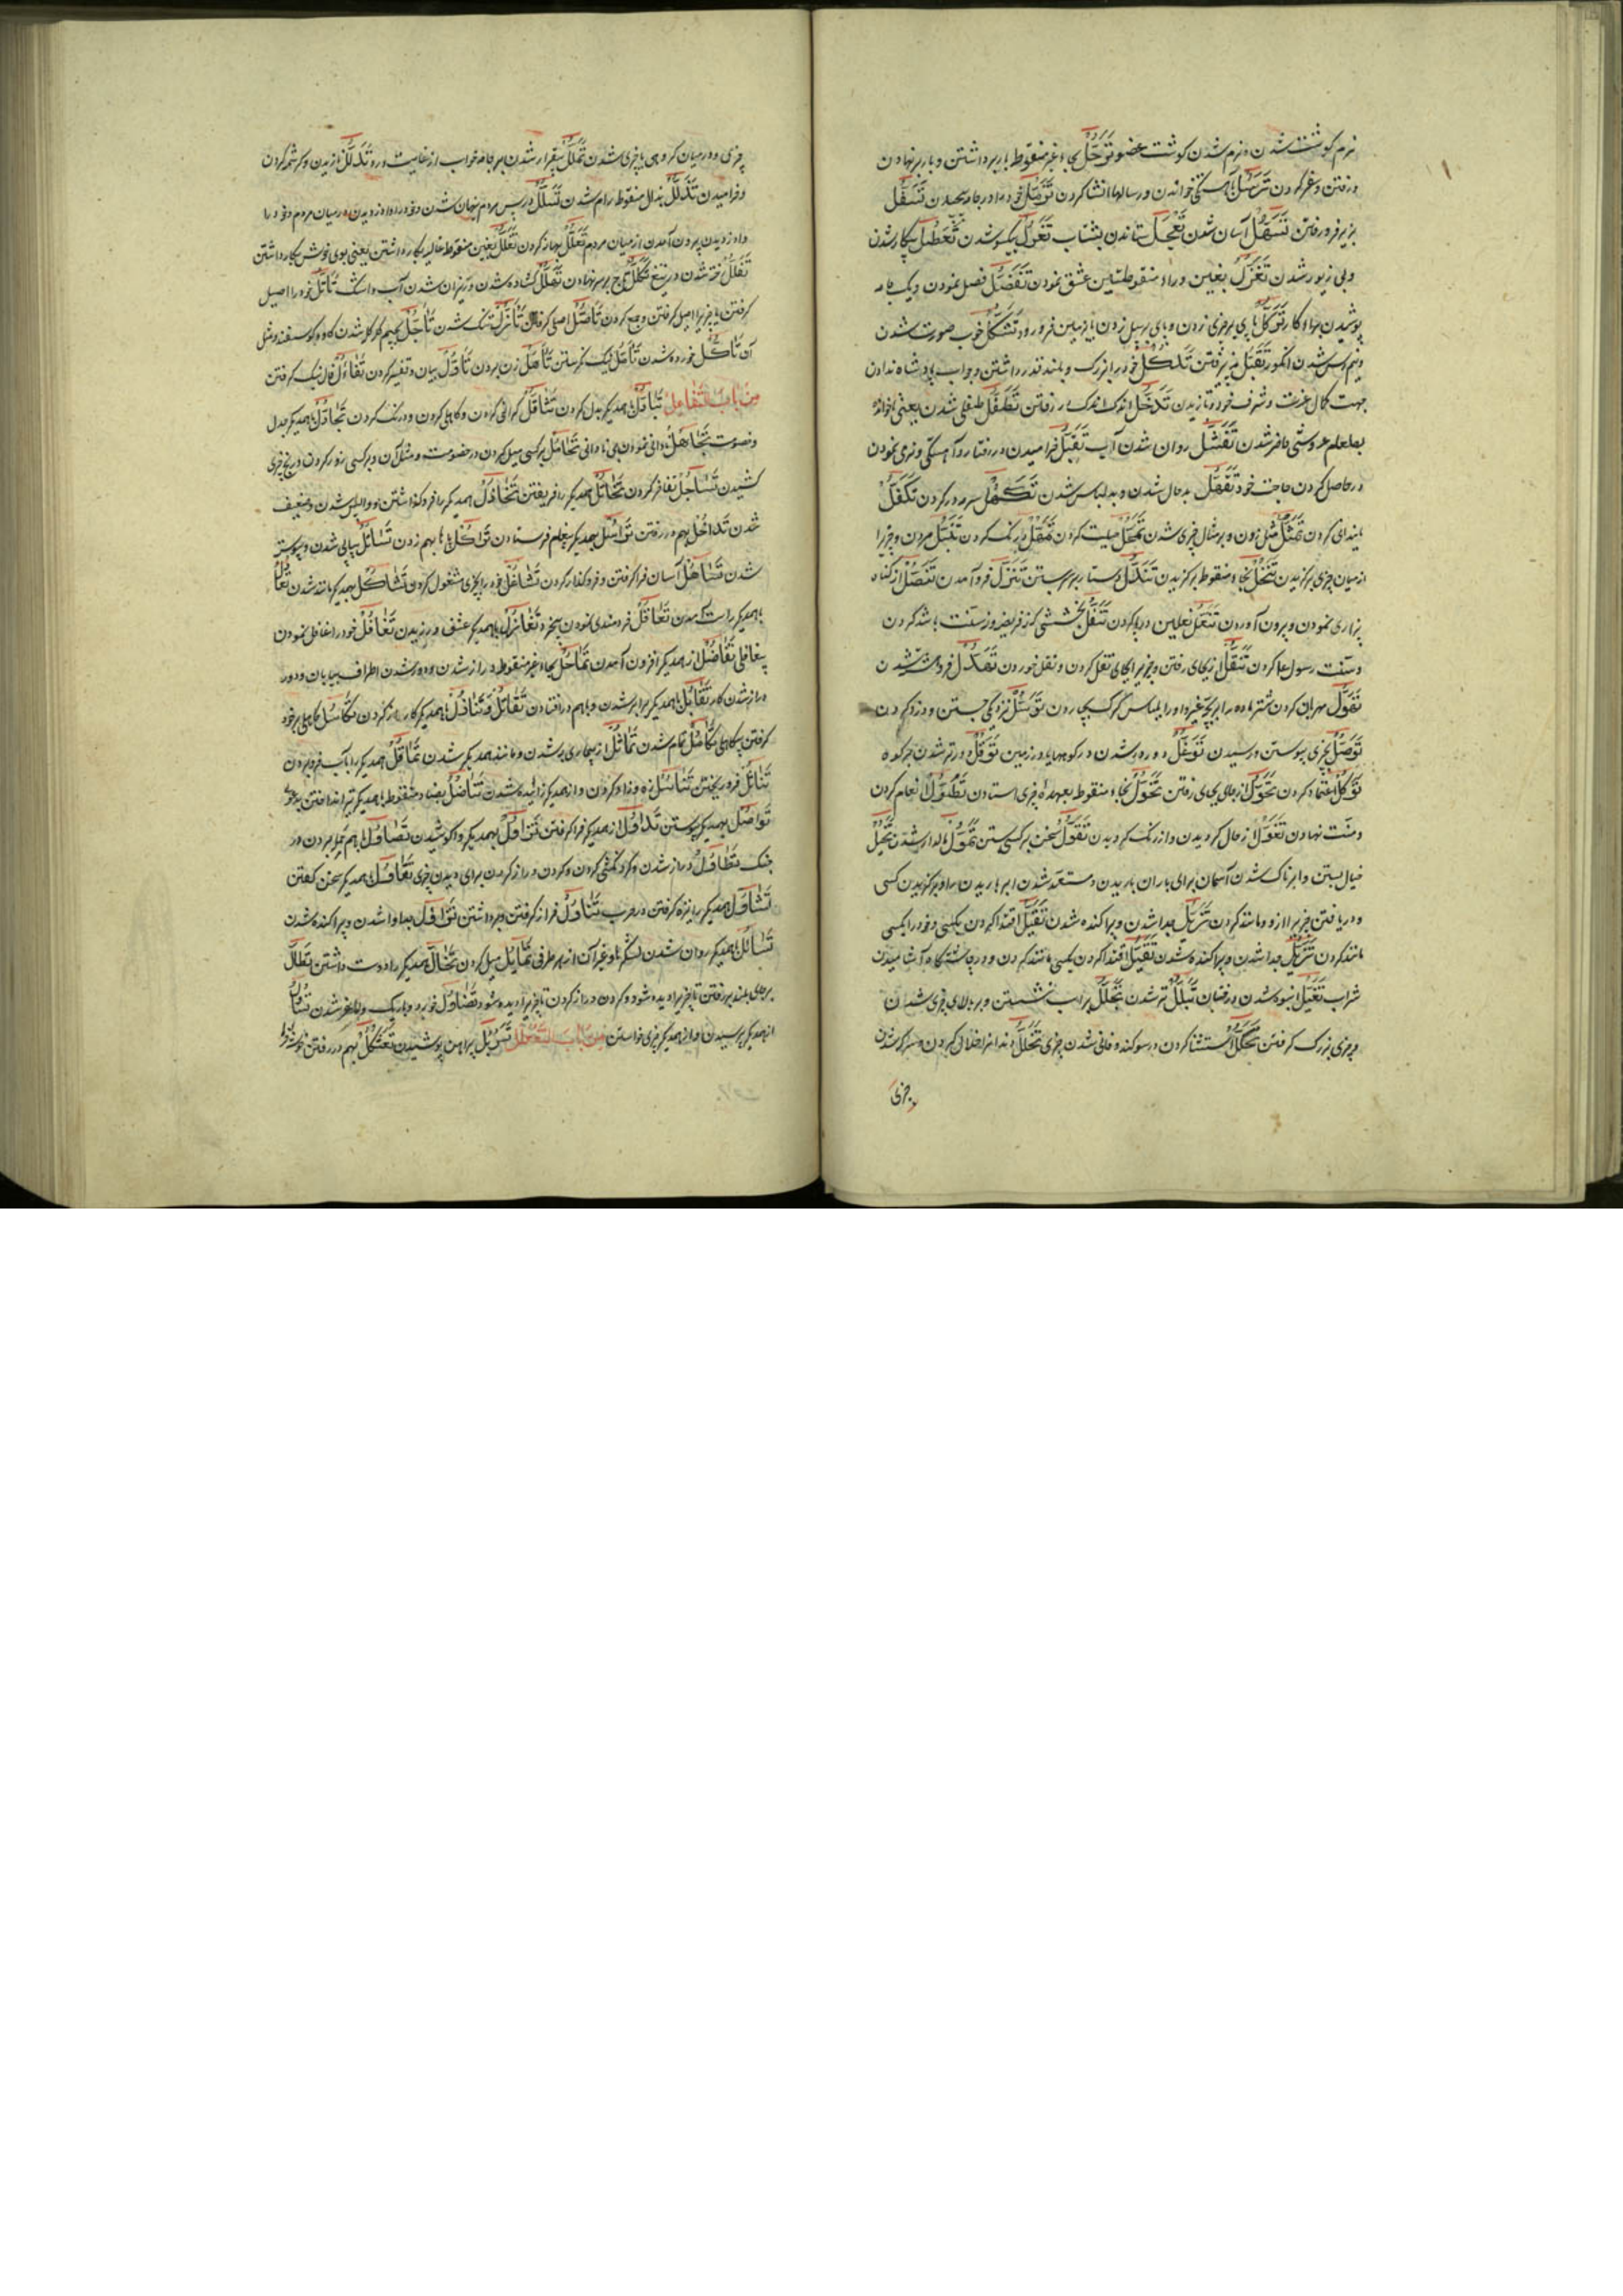 نرم کوشت شدن و نرم شدن کوشت عضو تَرَحُّل بحاء غیر منقوط بار برداشتن و بار برنهادن
و رفتن و سفر کردن تَرَسُّل باهستکی خواندن و رسالها انشا کردن تَزَمُّل خود را در جامه پیچیدن تَسَفُّل
بزیر فرو رفتن تَسَهُّل آسان شدن تَعَجُّل ستاندن بشتاب تَعَزُّل یکسو شدن تَعَطُّل بیکار شدن
و بی زیور شدن تَغَزُّل بغین و زاء منقوطتین عشق نمودن تَفَضُّل فضل نمودن و یک جامه
پوشیدن برای کار تَوَکُّل پای بر چیزی زدن و پای بر بیل زدن تا بزمین فرو رود تَشَکُّل خوب صورت شدن
و نیم رس شدن انکور تَقَبُّل پذیرفتن تَدَکُّل خود را بزرک و بلند قدر داشتن و جواب پادشاه ندادن
جهت کمال عزت و شرف خود و نازیدن تَدَخُّل اندک اندک در رفتن تَطَفُّل طفیلی شدن یعنی ناخوانده
بطعام عروسی حاضر شدن روان شدن آب تَقَتُّل خرامیدن در رفتار و آهستکی و نرمی نمودن
در حاصل کردن حاجت خود تَقَهُّل بد حال شدن و بد لباس شدن تَکَحُّل سرمه در کردن تَکَفُّل
پایندانی کردن تَمَثُّل مثل زدن و بر مثال چیزی شدن تَمَحُّل حیلت کردن تَمَهُّل درنک کردن
از میان چیزی برکزیدن تَنَخُّل بخاء منقوط برکزیدن تَنَدُّل دستار بر سر بستن تَنَزُّل فرو آمدن تَنَصُّل از کناه
بیزاری نمودن و بیرون آوردن تَنَعُّل نعلین در پا کردن تَنَفُّل بخششی کز فریضه و سنت باشد کردن
و سنت رسول ادا کردن تَنَقُّل از جای رفتن و چیزی را بجای نقل کردن و نقل خوردن تَهَدُّل فروهشته شدن
توسل نزدیکی جستن و دزدی کردن
تَوَصُّل بچیزی پیوستن و رسیدن تَوَغُّل دور در شدن در کوهها و در زمین تَوَقُّل در بر شدن بر کوه
تَوَکُّل اعتماد کردن تَحَوُّل از جای بجای رفتن تَخَوُّل بخاء منقوط بعهده چیزی استادن تَطَوُّل انعام کردن
و منت نهادن تَغَوُّل از حال کردیدن و از رنک کردیدن تَقَوُّل سخن بر کسی بستن تَمَوُّل مالدار شدن تَخَیُّل
خیال بستن و ابرناک شدن آسمان برای باران باریدن و مستعد شدن ابر باریدن را و برکزیدن کسی
و دریافتن چیزی را از و مانند کردن تَزَیُّل جدا شدن و پراکنده شدن تَقَیُّل اقتدا کردن بکسی و خود را بکسی
مانند کردن تَزَیُّل جدا شدن و پراکنده شدن تَقَیُّل اقتدا کردن بکسی مانند کردن و در چاشتکاه آشامیدن
شراب تَغَیُّل انبوه شدن درختان تَبَلُّل تر شدن تَجَلُّل بر اسب نشستن و بر بالای چیزی شدن
و چیزی بزرک کرفتن تَحَلُّل استثنا کردن در سوکند و فانی شدن چیزی تَخَلُّل دندانرا خلال کردن و سرکه شدن
چیزی
چیزی و در میان کروهی یا چیزی شدن تَمَلُّل بیقرار شدن بر جامه خواب از غایت درد تَدَلُّل نازیدن و کرشمه کردن
و خرامیدن تَذَلُّل بذال منقوط رام شدن تَسَلُّل در پس مردم پنهان شدن و خود را وا دزدیدن و در میان مردم و خود را
وا دزدیدن بیرون آمدن از میان مردم تَعَلُّل بهانه کردن تَغَلُّل بغین منقوط غالیه بکار داشتن یعنی بوی خوش بکار داشتن
تَفَلُّل رخنه شدن در تیغ تَکَلُّل تاج بر سر نهادن تَهَلُّل کشاده شدن و ریزان شدن آب و اشک تَأَثُّل خود را اصیل
کرفتن یا چیزی را اصل کرفتن و جمع کردن تَأَصُّل اصلی کرفتن تَأَزُّل تنک شدن تَأَجُّل کله شدن کاو و کوسفند و مثل
آن تَأَکُّل خورده شدن تَأَمُّل نیک نکریستن تَأَهُّل زن بردن تَأَوُّل بیان و تفسیر کردن تَفَاؤُل فال نیک کرفتن
مِن بابِ التَّفَاعُلِ تَبَادُل باهمدیکر بدل کردن تَثَاقُل کرانی کردن و کاهلی کردن و درنک کردن تَجَادُل باهمدیکر جدل
و خصومت تَجَاهُل نادانی نمودن بی نادانی تَحَامُل بر کسی میل کردن در خصومت و مثل آن و بر کسی زور کردن و رنج چیزی
کشیدن تَسَاجُل تفاخر کردن تَخَاتُل همدیکر را فریفتن تَخَاذُل همدیکر را فرو کذاشتن و واپس شدن و ضعیف
شدن تَدَاخُل بهم در رفتن تَرَاسُل بهمدیکر پیغام فرستادن بهم زدن پیاپی شدن و پیوسته
شدن تَسَاهُل آسان فرا کرفتن و فرو کذار کردن تَشَاغُل خود را بچیزی مشغول کردن تَشَاکُل بهمدیکر مانند شدن
باهمدیکر راست آمدن تَعَاقُل خردمندی نمودن بی خرد تَغَازُل باهمدیکر عشق ورزیدن تَغَافُل خود را غافل نمودن
بی غافلی تَفَاضُل از همدیکر افزون آمدن تَمَاحُل بحاء غیر منقوط دراز شدن و دور شدن اطراف بیابان و دور
دراز شدن کار تَقَابُل باهمدیکر برابر شدن و باهم در افتادن تَقَاتُل همدیکر کارزار کردن تَکَاسُل کاهلی بر خود
کرفتن بی کاهلی تَکَامُل تمام شدن تَمَاثُل از بیماری به شدن و مانند همدیکر شدن تَمَاقُل همدیکر را بآب فرو بردن
فرو ریختن تَنَاسُل زه و زاد کردن و از همدیکر زائیده شدن تَنَاضُل بضاد منقوط باهمدیکر تیر انداختن
تَوَاصُل بهمدیکر پیوستن تَدَاوُل از همدیکر فرا کرفتن تَزَاوُل بهمدیکر وا کوشیدن تَصَاوُل باهم حمله بردن در
جنک تَطَاوُل دراز شدن و کردنکشی کردن و کردن دراز کردن برای دیدن چیزی تَقَاوُل باهمدیکر سخن کفتن
تَشَاوُل همدیکر را بنیزه کرفتن در حرب تَنَاوُل فراز کرفتن و برداشتن جدا وا شدن و پراکنده شدن
تَسَایُل باهمدیکر روان شدن لشکر یا و غیر آن از هر طرفی تَمَایُل میل کردن تَخَالُّ همدیکر را دوست داشتن تَطَالُّ
بر جای بلند بر رفتن تا چیزی را دیده شود و کردن دراز کردن تا چیزی را دیده شود تَضَاؤُل خورد و باریک و لاغر شدن تَسَاؤُل
از همدیکر پرسیدن و از همدیکر چیزی خواستن مِن باب التَّفَعْلُل تَسَرْبُل پیراهن پوشیدن تَعَثْکُل بهم در رفتن